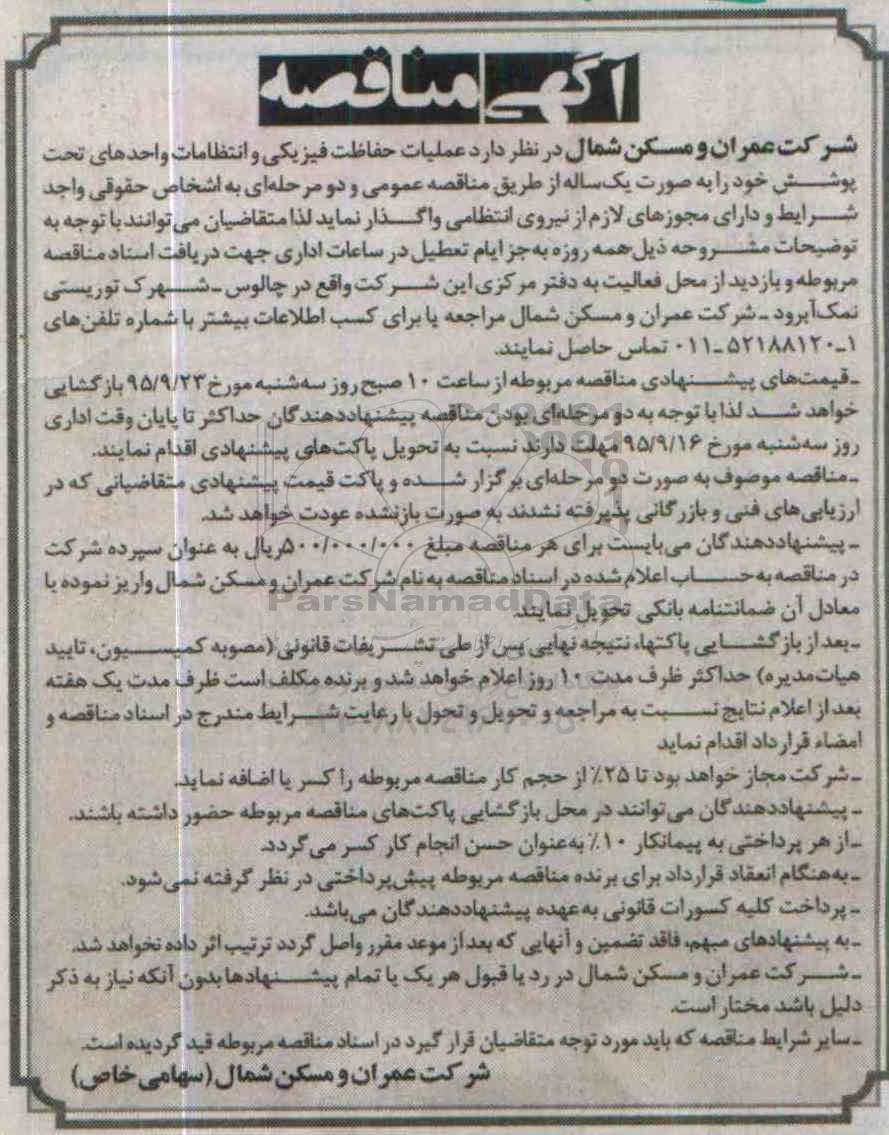 آگهی مناقصه
شرکت عمران و مسکن شمال در نظر دارد عملیات حفاظت فیزیکی و انتظامات واحدهای تحت
پوشش خود را به صورت یک‌ساله از طریق مناقصه عمومی و دو مرحله‌ای به اشخاص حقوقی واجد
شرایط و دارای مجوزهای لازم از نیروی انتظامی واگذار نماید لذا متقاضیان می‌توانند با توجه به
توضیحات مشروحه ذیل همه روزه به‌جز ایام تعطیل در ساعات اداری جهت دریافت اسناد مناقصه
مربوطه و بازدید از محل فعالیت به دفتر مرکزی این شرکت واقع در چالوس ـ شهرک توریستی
نمک‌آبرود ـ شرکت عمران و مسکن شمال مراجعه یا برای کسب اطلاعات بیشتر با شماره تلفن‌های
۱ـ۵۲۱۸۸۱۲۰ـ۰۱۱ تماس حاصل نمایند.
ـ قیمت‌های پیشنهادی مناقصه مربوطه از ساعت ۱۰ صبح روز سه‌شنبه مورخ ۹۵/۹/۲۳ بازگشایی
خواهد شد لذا با توجه به دو مرحله‌ای بودن مناقصه پیشنهاددهندگان حداکثر تا پایان وقت اداری
روز سه‌شنبه مورخ ۹۵/۹/۱۶ مهلت دارند نسبت به تحویل پاکت‌های پیشنهادی اقدام نمایند.
ـ مناقصه موصوف به صورت دو مرحله‌ای برگزار شده و پاکت قیمت پیشنهادی متقاضیانی که در
ارزیابی‌های فنی و بازرگانی پذیرفته نشدند به صورت بازنشده عودت خواهد شد.
ـ پیشنهاددهندگان می‌بایست برای هر مناقصه مبلغ ۵۰۰/۰۰۰/۰۰۰ریال به عنوان سپرده شرکت
در مناقصه به‌حساب اعلام شده در اسناد مناقصه به نام شرکت عمران و مسکن شمال واریز نموده یا
معادل آن ضمانتنامه بانکی تحویل نمایند.
ParsNamadData
ـ بعد از بازگشایی پاکتها، نتیجه نهایی پس از طی تشریفات قانونی (مصوبه کمیسیون، تایید
هیات‌مدیره) حداکثر ظرف مدت ۱۰ روز اعلام خواهد شد و برنده مکلف است ظرف مدت یک هفته
بعد از اعلام نتایج نسبت به مراجعه و تحویل و تحول با رعایت شرایط مندرج در اسناد مناقصه و
امضاء قرارداد اقدام نماید
ـ شرکت مجاز خواهد بود تا ۲۵٪ از حجم کار مناقصه مربوطه را کسر یا اضافه نماید.
ـ پیشنهاددهندگان می‌توانند در محل بازگشایی پاکت‌های مناقصه مربوطه حضور داشته باشند.
ـ از هر پرداختی به پیمانکار ۱۰٪ به‌عنوان حسن انجام کار کسر می‌گردد.
ـ به‌هنگام انعقاد قرارداد برای برنده مناقصه مربوطه پیش‌پرداختی در نظر گرفته نمی‌شود.
ـ پرداخت کلیه کسورات قانونی به‌عهده پیشنهاددهندگان می‌باشد.
ـ به پیشنهادهای مبهم، فاقد تضمین و آنهایی که بعد از موعد مقرر واصل گردد ترتیب اثر داده نخواهد شد.
ـ شرکت عمران و مسکن شمال در رد یا قبول هر یک یا تمام پیشنهادها بدون آنکه نیاز به ذکر
دلیل باشد مختار است.
ـ سایر شرایط مناقصه که باید مورد توجه متقاضیان قرار گیرد در اسناد مناقصه مربوطه قید گردیده است.
شرکت عمران و مسکن شمال (سهامی خاص)